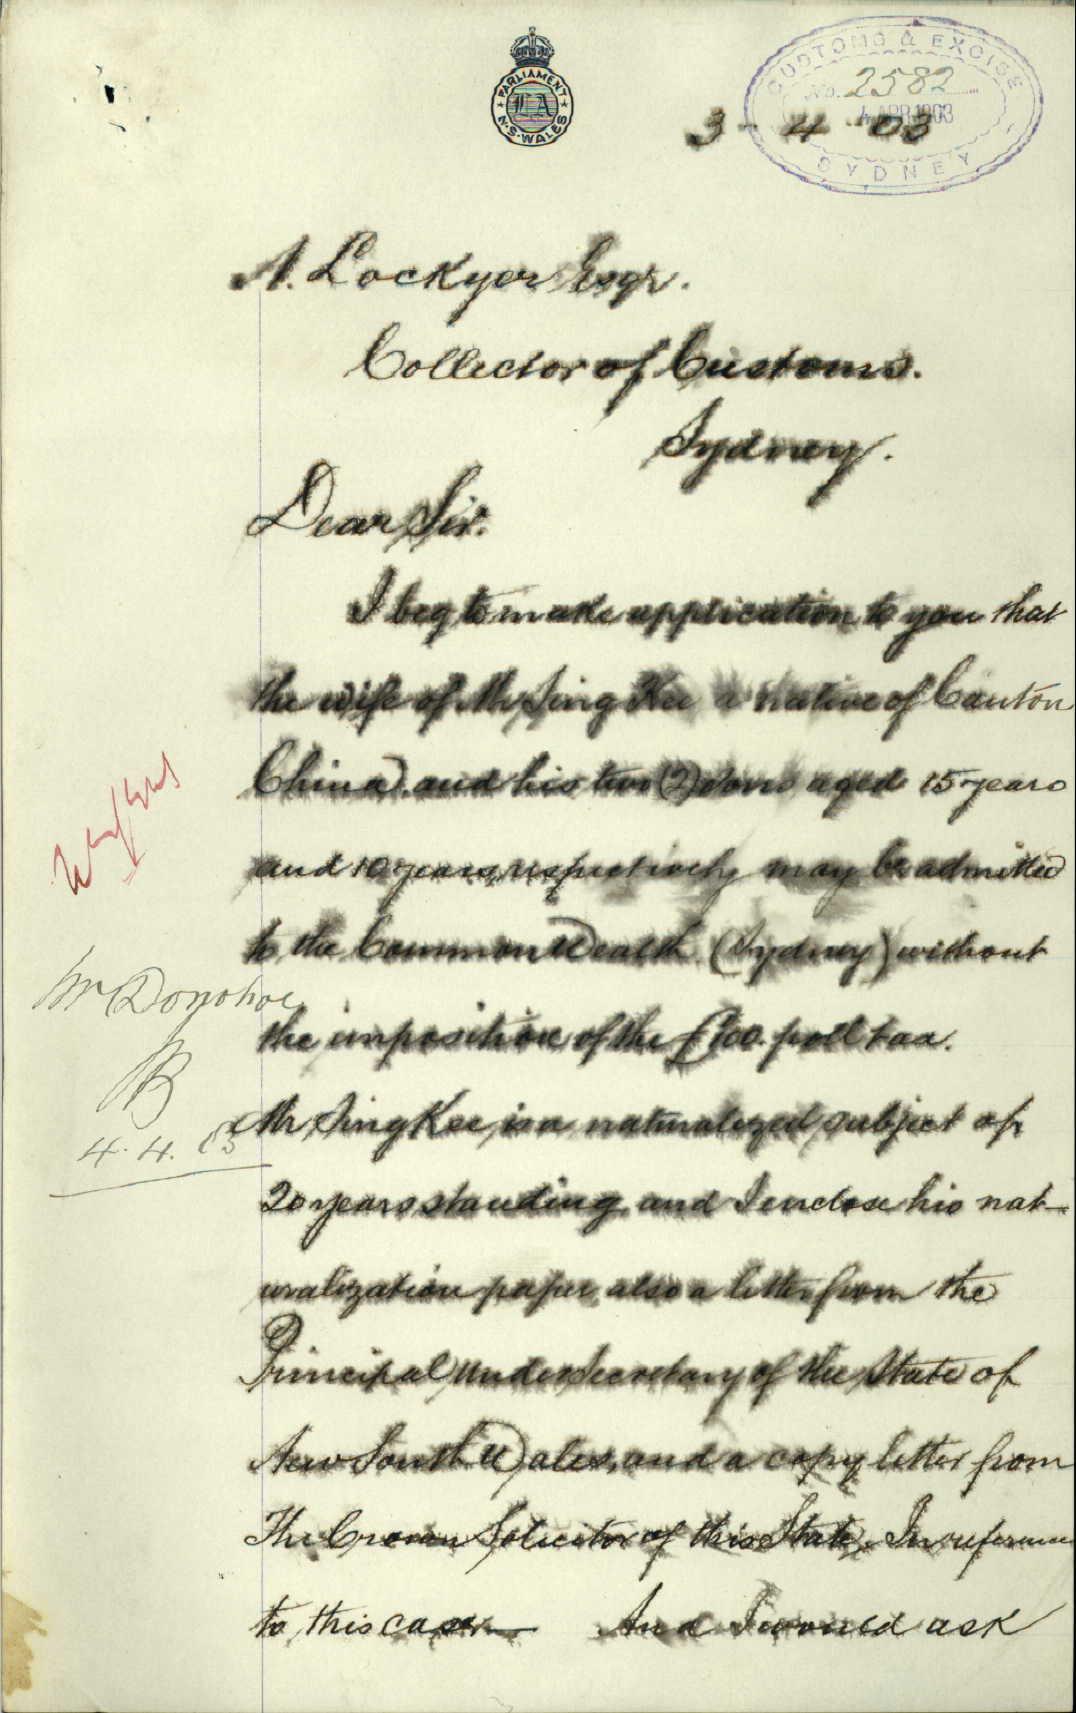 PARLIAMENT
LA
N.S. WALES
CUSTOMS & EXCISE
No. 2582
4 APR 1903
SYDNEY
3 - 4 - 03
N. Lockyer Esqr.
Collector of Customs.
Sydney.
Dear Sir.
I beg to make application to you that
the wife of Mr Sing Kee a native of Canton
China) and his two (2) sons aged 15 years
and 10 years, respectively may be admitted
to the CommonWealth (Sydney) without
the imposition of the £100. poll tax.
Mr Sing Kee, is a naturalized subject of
20 years standing, and I enclose his nat-
uralization paper, also a letter from the
Principal Under Secretary of the State of
New South Wales, and a copy letter from
The Crown Solicitor of this State. In reference
to this case. — And I would ask
Mr Donohoe
4. 4. 03